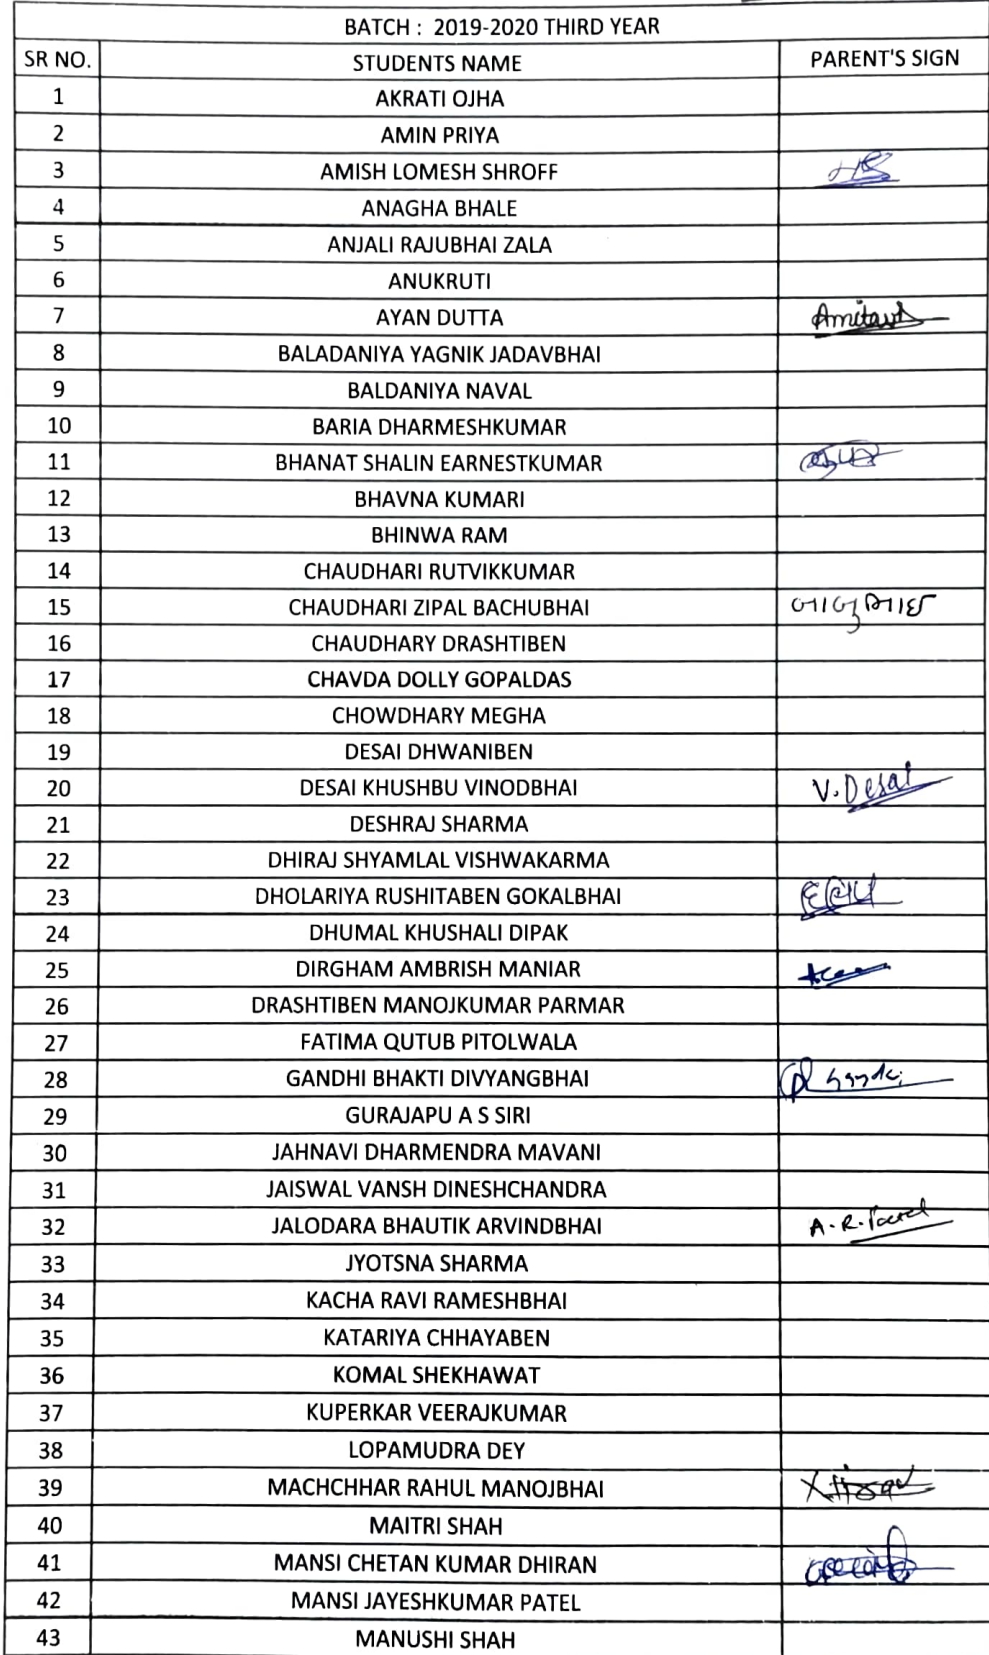 BATCH : 2019-2020 THIRD YEAR
SR NO. STUDENTS NAME PARENT'S SIGN
1 AKRATI OJHA
2 AMIN PRIYA
3 AMISH LOMESH SHROFF
4 ANAGHA BHALE
5 ANJALI RAJUBHAI ZALA
6 ANUKRUTI
7 AYAN DUTTA
8 BALADANIYA YAGNIK JADAVBHAI
9 BALDANIYA NAVAL
10 BARIA DHARMESHKUMAR
11 BHANAT SHALIN EARNESTKUMAR
12 BHAVNA KUMARI
13 BHINWA RAM
14 CHAUDHARI RUTVIKKUMAR
15 CHAUDHARI ZIPAL BACHUBHAI
16 CHAUDHARY DRASHTIBEN
17 CHAVDA DOLLY GOPALDAS
18 CHOWDHARY MEGHA
19 DESAI DHWANIBEN
20 DESAI KHUSHBU VINODBHAI V. Desai
21 DESHRAJ SHARMA
22 DHIRAJ SHYAMLAL VISHWAKARMA
23 DHOLARIYA RUSHITABEN GOKALBHAI
24 DHUMAL KHUSHALI DIPAK
25 DIRGHAM AMBRISH MANIAR
26 DRASHTIBEN MANOJKUMAR PARMAR
27 FATIMA QUTUB PITOLWALA
28 GANDHI BHAKTI DIVYANGBHAI
29 GURAJAPU A S SIRI
30 JAHNAVI DHARMENDRA MAVANI
31 JAISWAL VANSH DINESHCHANDRA
32 JALODARA BHAUTIK ARVINDBHAI A. R. Patel
33 JYOTSNA SHARMA
34 KACHA RAVI RAMESHBHAI
35 KATARIYA CHHAYABEN
36 KOMAL SHEKHAWAT
37 KUPERKAR VEERAJKUMAR
38 LOPAMUDRA DEY
39 MACHCHHAR RAHUL MANOJBHAI
40 MAITRI SHAH
41 MANSI CHETAN KUMAR DHIRAN
42 MANSI JAYESHKUMAR PATEL
43 MANUSHI SHAH